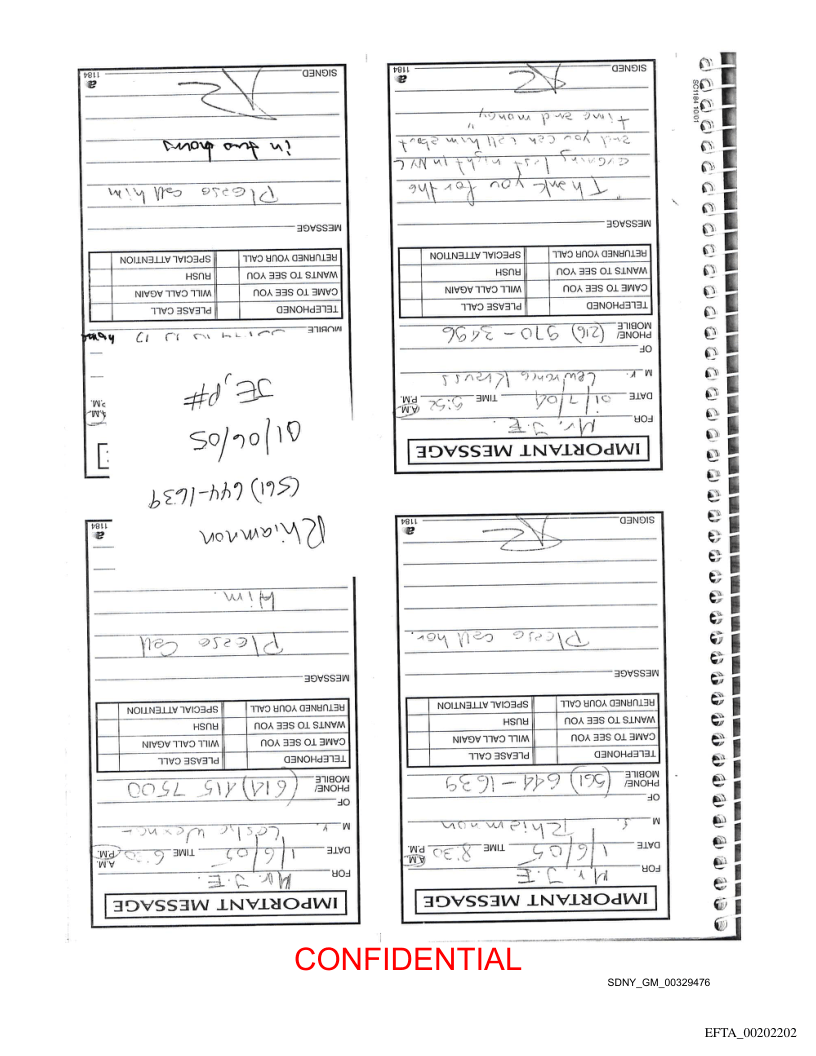 IMPORTANT MESSAGE
FOR Mr. J.E.
DATE 1/6/05 TIME 8:30 A.M. P.M.
M s. Rhiamnon
OF
PHONE/ MOBILE (561) 644-1639
TELEPHONED PLEASE CALL
CAME TO SEE YOU WILL CALL AGAIN
WANTS TO SEE YOU RUSH
RETURNED YOUR CALL SPECIAL ATTENTION
MESSAGE
Please call her.
SIGNED
a 1184
IMPORTANT MESSAGE
FOR Mr. J.E.
DATE 1/6/05 TIME 6:30 A.M. P.M.
M r. Leslie Wexner
OF
PHONE/ MOBILE (614) 415 7500
TELEPHONED PLEASE CALL
CAME TO SEE YOU WILL CALL AGAIN
WANTS TO SEE YOU RUSH
RETURNED YOUR CALL SPECIAL ATTENTION
MESSAGE
Please call
Him.
a 1184
Rhiannon
(561) 644-1639
01/06/05
JE, p#
IMPORTANT MESSAGE
FOR Mr. J.E.
DATE 01/7/04 TIME A.M. P.M.
M r. Lawrence Krauss
OF
PHONE/ MOBILE (216) 970-3496
TELEPHONED PLEASE CALL
CAME TO SEE YOU WILL CALL AGAIN
WANTS TO SEE YOU RUSH
RETURNED YOUR CALL SPECIAL ATTENTION
MESSAGE
"Thank you for the
evening last night in NYC
and you can call him about
time and money"
SIGNED
a 1184
A.M.
P.M.
MOBILE
TELEPHONED PLEASE CALL
CAME TO SEE YOU WILL CALL AGAIN
WANTS TO SEE YOU RUSH
RETURNED YOUR CALL SPECIAL ATTENTION
MESSAGE
Please call him
in two hours
SIGNED
a 1184
SC1184 10/01
CONFIDENTIAL
SDNY_GM_00329476
EFTA_00202202